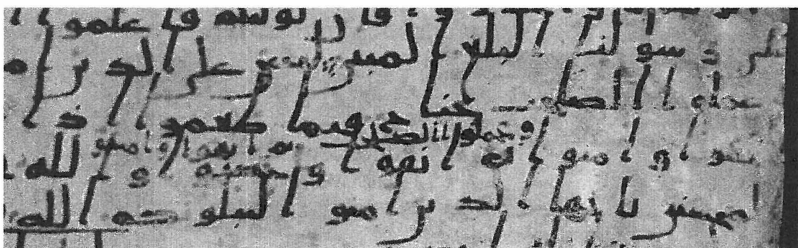 توليتم فاعلموا ا
على رسولنا البلغ المبين ليس على الذين ام
عملوا الصلحت جنح فيما طعموا اذ
وعملوا الصلحت ما اتقوا وامنو
وامنوا ثم اتقوا واحسنوا والله
المحسنين يايها الذين امنوا ليبلونكم الله